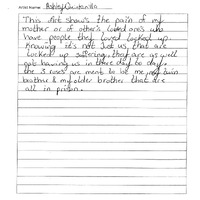 Artist Name: Ashley Quintanilla
This Art shows the pain of my
mother or of other's loved one's who
have people they loved locked up.
Knowing it's not just us that are
locked up suffering, they are as well
not having us in there day to day.
the 3 roses are ments to be me, my twin
brother & my older brother that are
all in prison.